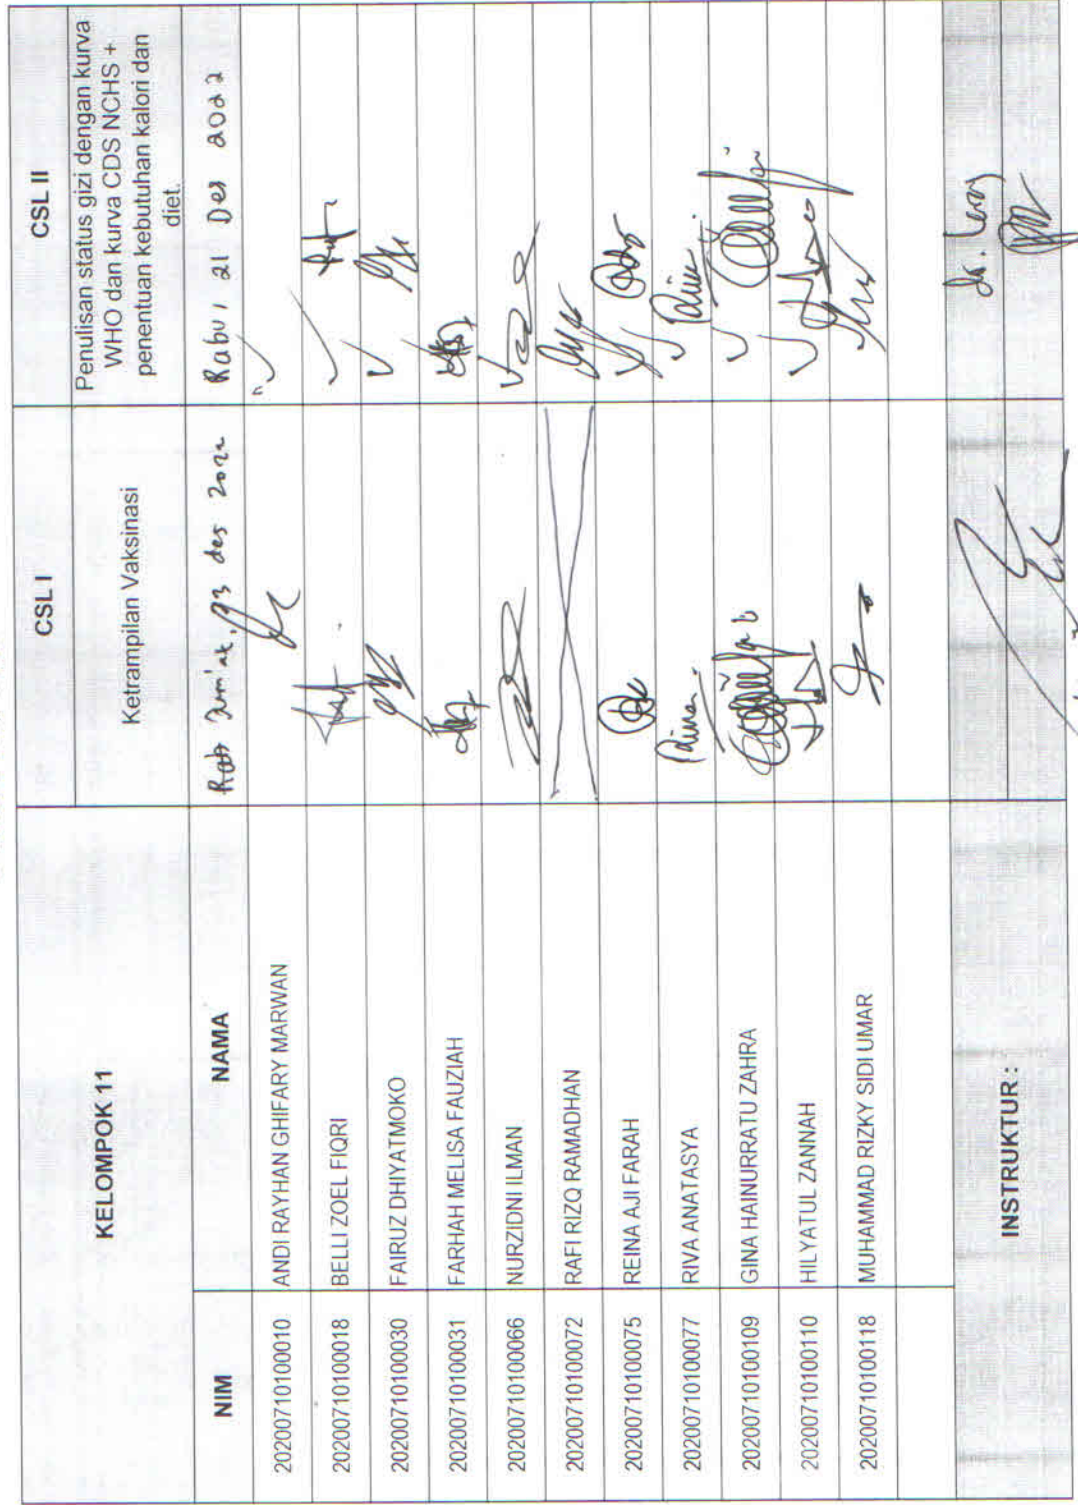 KELOMPOK 11
CSL I
CSL II
Ketrampilan Vaksinasi
Penulisan status gizi dengan kurva
WHO dan kurva CDS NCHS +
penentuan kebutuhan kalori dan
diet.
NIM NAMA
Jum'at, 23 des 2022
Rabu, 21 Des 2022
20200710100010 ANDI RAYHAN GHIFARY MARWAN
20200710100018 BELLI ZOEL FIQRI
20200710100030 FAIRUZ DHIYATMOKO
20200710100031 FARHAH MELISA FAUZIAH
20200710100066 NURZIDNI ILMAN
20200710100072 RAFI RIZQ RAMADHAN
20200710100075 REINA AJI FARAH
20200710100077 RIVA ANATASYA
20200710100109 GINA HAINURRATU ZAHRA
20200710100110 HILYATUL ZANNAH
20200710100118 MUHAMMAD RIZKY SIDI UMAR
INSTRUKTUR :